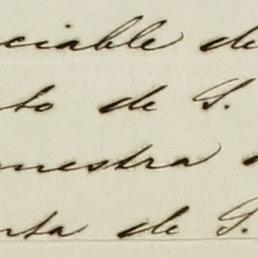 ciable de
to de S.
nuestra
nta de S.